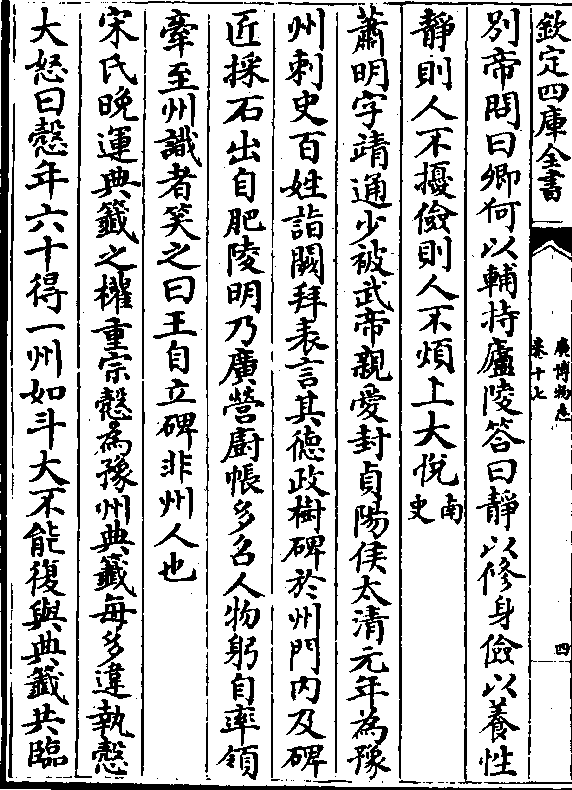 欽定四庫全書
廣博物志
卷十七
四
別帝問曰卿何以輔持廬陵答曰靜以修身儉以養性
靜則人不擾儉則人不煩上大悅南史
蕭明字靖通少被武帝親愛封貞陽侯太清元年為豫
州刺史百姓詣闕拜表言其德政樹碑於州門內及碑
匠採石出自肥陵明乃廣營廚帳多召人物躬自率領
牽至州識者笑之曰王自立碑非州人也
宋氏晚運典籤之權重宗慤為豫州典籤每多違執慤
大怒曰慤年六十得一州如斗大不能復與典籤共臨